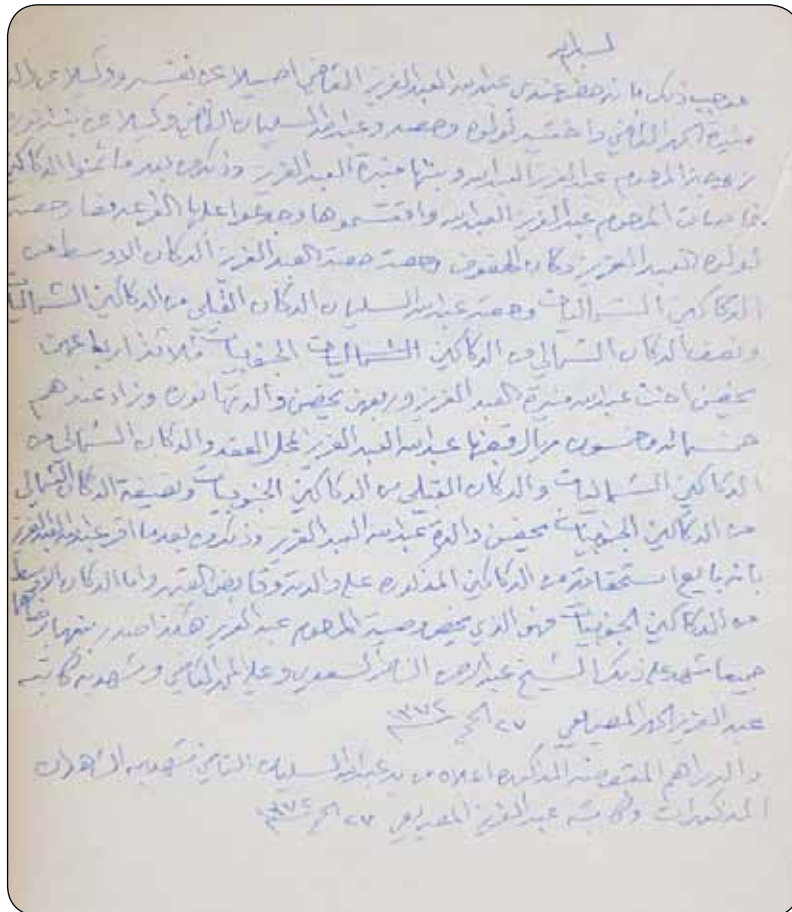 لسبابه
موجب ذلك بانه حضر عندي عبدالله العبدالعزيز القاضي اصيلا عن نفسه ووكيلا عن
منيرة الحمد القاضي واخته لولوه وحصه وعبدالله السليمان القاضي وكيلا عن
زوجة المرحوم عبدالعزيز العبدالله وبنتها منيرة العبدالعزيز وذلك بعد ما ثمنوا الدكاكين
المرحوم عبدالعزيز العبدالله واقتسموها ووقعوا عليها القرعه فصار حصة
لولوه العبدالعزيز دكان وحصة حصة العبدالعزيز الدكان الاوسط من
الدكاكين الشماليات وحصة عبدالله السليمان الدكان القبلي من الدكاكين الشماليات
ونصف الدكان الشمالي من الدكاكين الجنوبيات ثلاثة ارباعهن
يخصن اخت عبدالله منيرة العبدالعزيز وربعهن يخصن والدتها نوره وزاد عندهم
خمسمائه وخمسون ريال قبضها عبدالله العبدالعزيز بمحل العقد والدكان الشمالي من
الدكاكين الشماليات والدكان القبلي من الدكاكين الجنوبيات ونصيفة الدكان الشمالي
من الدكاكين الجنوبيات يخصن والدة عبدالله العبدالعزيز وذلك بعد ما اقر عبدالله العبدالعزيز
بانه بايع استحقاقه من الدكاكين المذكوره على والدته وقابض الثمن واما الدكان الاوسط
من الدكاكين الجنوبيات فهو الذي يخص وصية المرحوم عبدالعزيز هكذا صدر بينهم برضاهم
جميعا شهد على ذلك الشيخ عبدالرحمن الناصر السعدي وعلي الحمد القاضي وشهد به كاتبه
عبدالعزيز الحمد المصيريعي ٢٧ الحج ١٣٧٢
والدراهم المقبوضه المذكوره اعلاه من يد عبدالله السليمان القاضي شهد به الشاهدان
المذكوران وكاتبه عبدالعزيز المصيريعي ٢٧ الحج ١٣٧٢